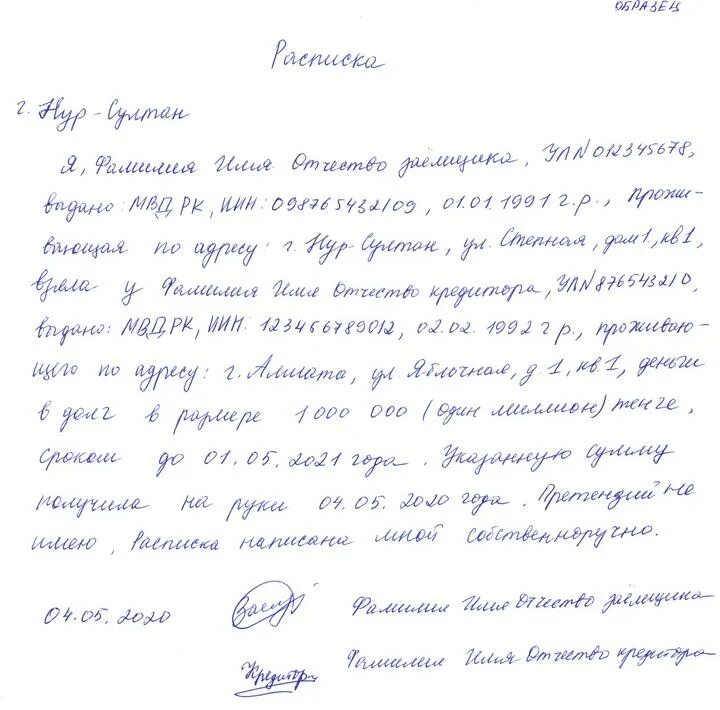 ОБРАЗЕЦ
Расписка
г. Нур-Султан
Я, Фамилия Имя Отчество заёмщика, УЛN012345678,
выдано: МВД РК, ИИН: 098765432109, 01.01.1991 г.р., прожи-
вающая по адресу: г. Нур-Султан, ул. Степная, дом1, кв1,
взяла у Фамилия Имя Отчество кредитора, УЛN876543210,
выдано: МВД РК, ИИН: 123456789012, 02.02.1992 г р., проживаю-
щего по адресу: г. Алмата, ул Яблочная, д.1, кв 1, деньги
в долг в размере 1 000 000 (один миллион) тенге,
сроком до 01.05.2021 года. Указанную сумму
получила на руки 04.05.2020 года. Претензий не
имею, Расписка написана мной собственноручно.
04.05.2020 Заемщ Фамилия Имя Отчество заёмщика
Кредитор Фамилия Имя Отчество кредитора